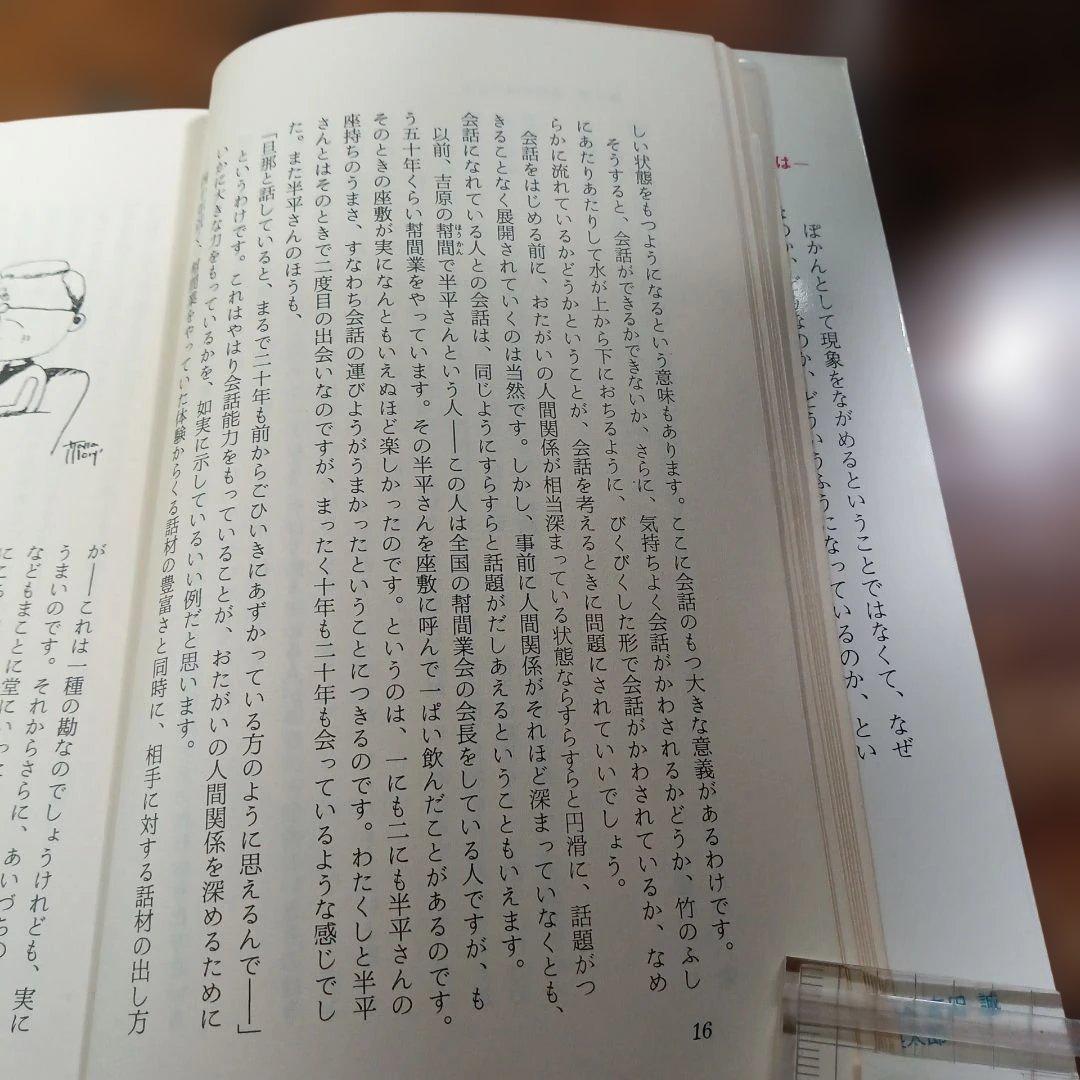 しい状態をもつようになるという意味もあります。ここに会話のもつ大きな意義があるわけです。
そうすると、会話ができるかできないか、さらに、気持ちよく会話がかわされるかどうか、竹のふし
にあたりあたりして水が上から下におちるように、びくびくした形で会話がかわされているか、なめ
らかに流れているかどうかということが、会話を考えるときに問題にされていいでしょう。
会話をはじめる前に、おたがいの人間関係が相当深まっている状態ならすらすらと円滑に、話題がつ
きることなく展開されていくのは当然です。しかし、事前に人間関係がそれほど深まっていなくとも、
会話になれている人との会話は、同じようにすらすらと話題がだしあえるということもいえます。
以前、吉原の幇間で半平さんという人――この人は全国の幇間業会の会長をしている人ですが、も
ほうかん
う五十年くらい幇間業をやっています。その半平さんを座敷に呼んで一ぱい飲んだことがあるのです。
そのときの座敷が実になんともいえぬほど楽しかったのです。というのは、一にも二にも半平さんの
座持ちのうまさ、すなわち会話の運びようがうまかったということにつきるのです。わたくしと半平
さんとはそのときで二度目の出会いなのですが、まったく十年も二十年も会っているような感じでし
た。また半平さんのほうも、
「旦那と話していると、まるで二十年も前からごひいきにあずかっている方のように思えるんで――」
というわけです。これはやはり会話能力をもっていることが、おたがいの人間関係を深めるために
いかに大きな力をもっているかを、如実に示しているいい例だと思います。
間業をやっていた体験からくる話材の豊富さと同時に、相手に対する話材の出し方
が――これは一種の勘なのでしょうけれども、実に
うまいのです。それからさらに、あいづちの
などもまことに堂にいって
16
は―
ぽかんとして現象をながめるということではなくて、なぜ
なのか、どういうふうになっているのか、とい
誠
太郎